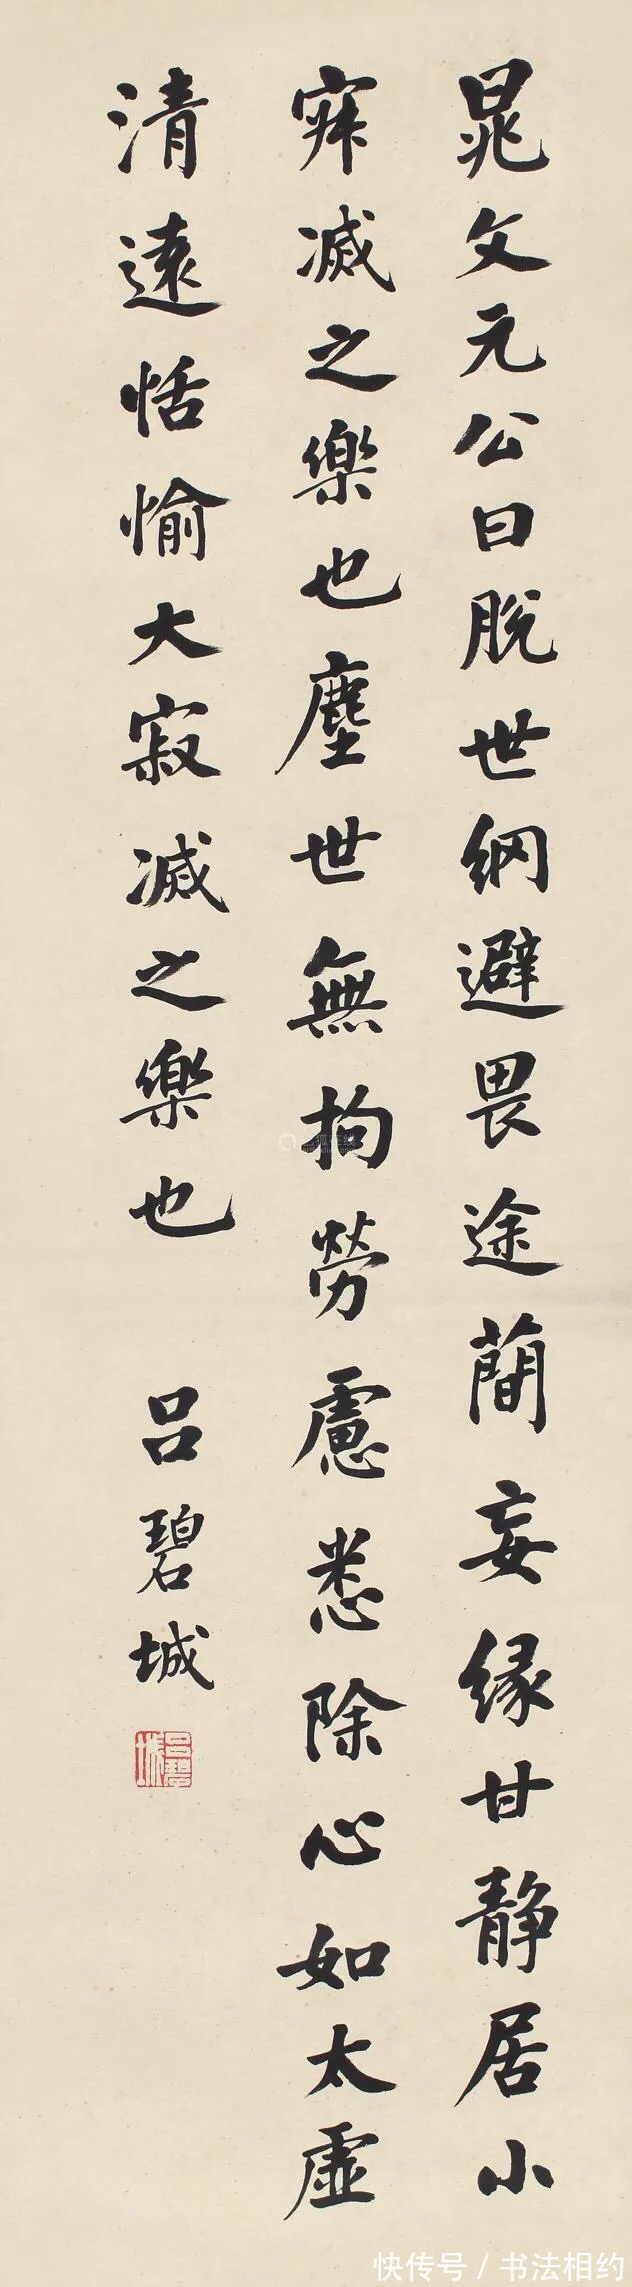 晁文元公曰脫世綱避畏途簡妄緣甘靜居小
寂滅之樂也塵世無拘勞慮悉除心如太虛
清遠恬愉大寂滅之樂也
吕碧城
吕碧城
快传号/书法相约